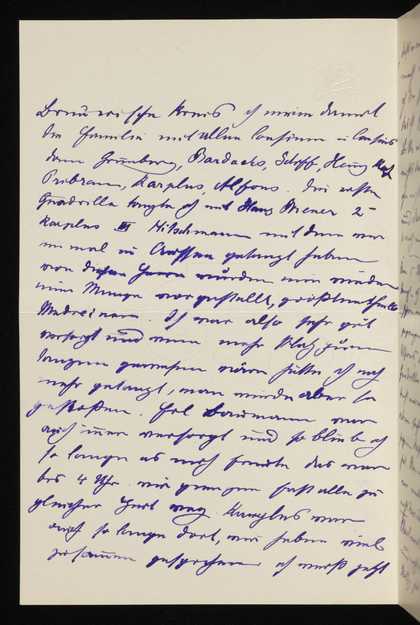 Familie mit allen Cousinen u Cousins
dann Grünberg, Bardachs, Schiff, Heinz
Pribram, Karplus, Alfons. Die erste
Quadrille tanzte ich mit Hans Wiener 2
Karplus III Hitschmann mit dem wir
einmal in Aussee getanzt haben
von diesen Herrn wurden mir wieder
eine Menge vorgestellt, größtentheils
Mediciner. Ich war also sehr gut
versorgt und wenn mehr Platz zum
tanzen gewesen wäre hätte ich noch
mehr getanzt, man wurde aber so
gestoßen. Frl Baumann war
auch immer versorgt und so blieb ich
so lange es mich freute das war
bis 4 Uhr. wir giengen fast alle zu
gleicher Zeit weg. Karplus war
auch so lange dort, wir haben viel
zusammen gesprochen ich weiß jetzt